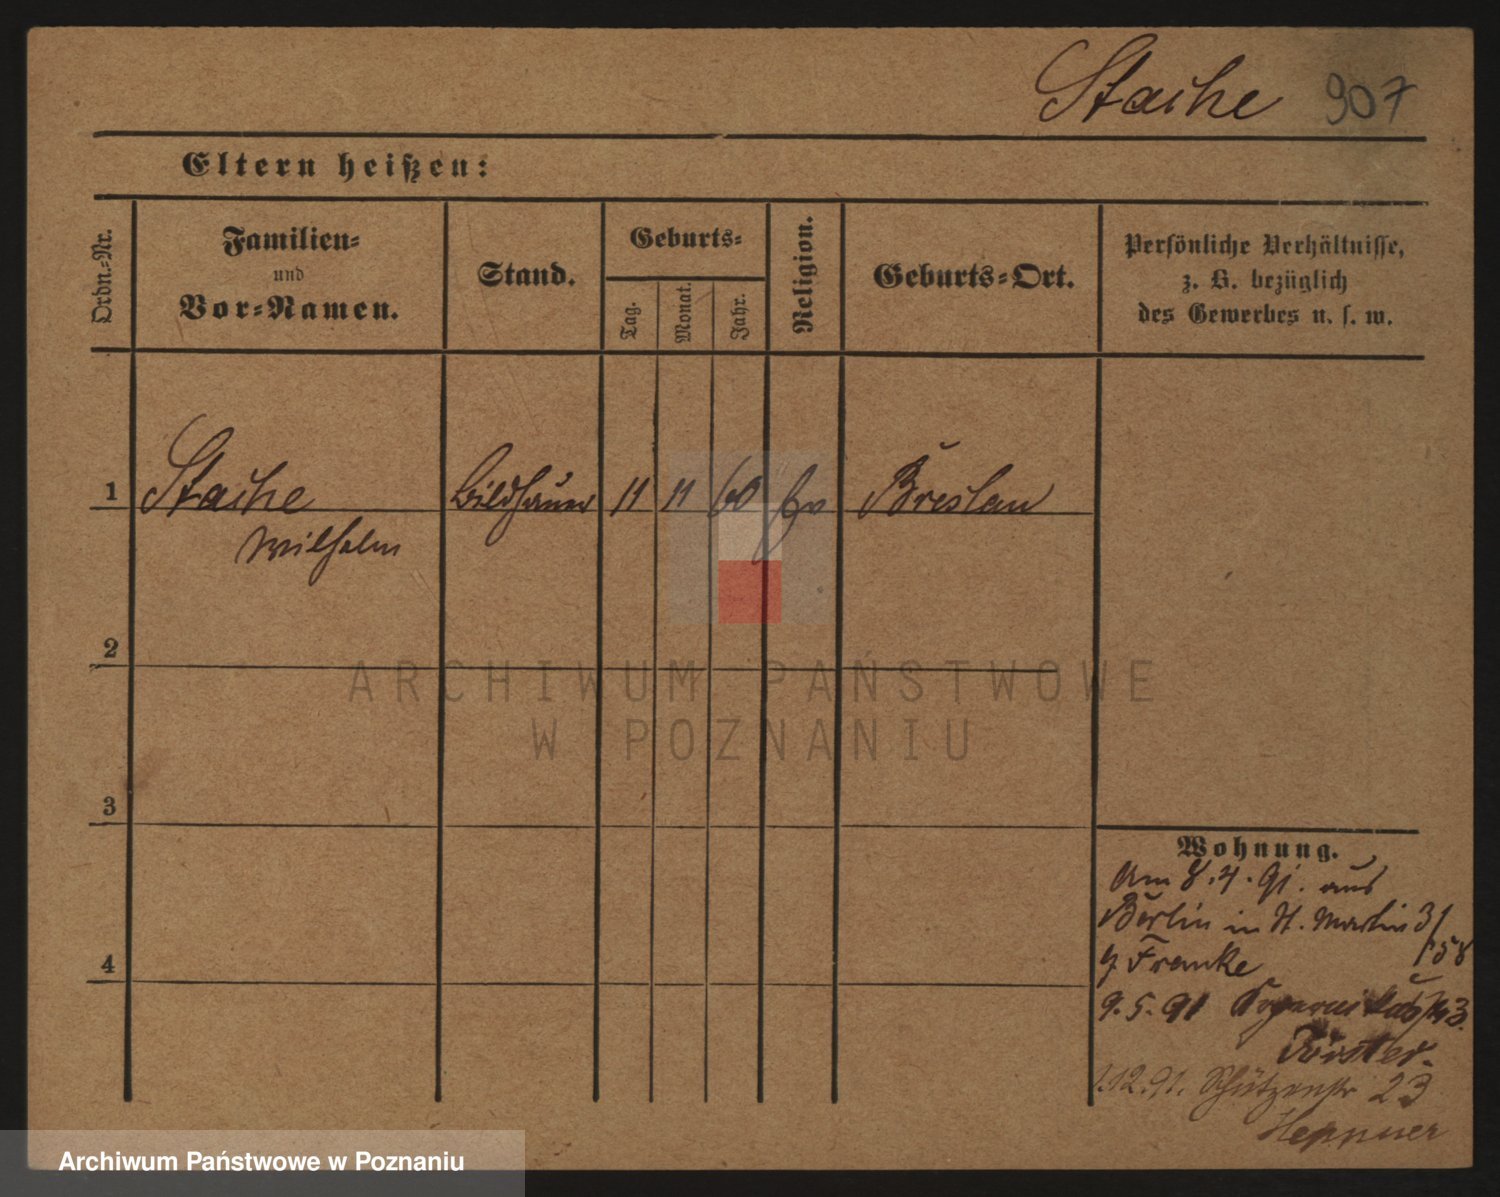 Staihe 907
Eltern heißen:
Ordn.-Nr.
Familien-
und
Vor-Namen.
Stand.
Geburts-
Tag.
Monat.
Jahr.
Religion.
Geburts-Ort.
Persönliche Verhältnisse,
z. B. bezüglich
des Gewerbes u. s. w.
1 Staihe Bildhauer 11 11 60 Ev Breslau
Wilhelm
2
3
4
Wohnung.
Am 8.4.91. aus
Berlin in St. Martin 31
b Franke /58
9.5.91
Förster.
1.12.91. Schützenstr 23
Heppner
ARCHIWUM PAŃSTWOWE
W POZNANIU
Archiwum Państwowe w Poznaniu